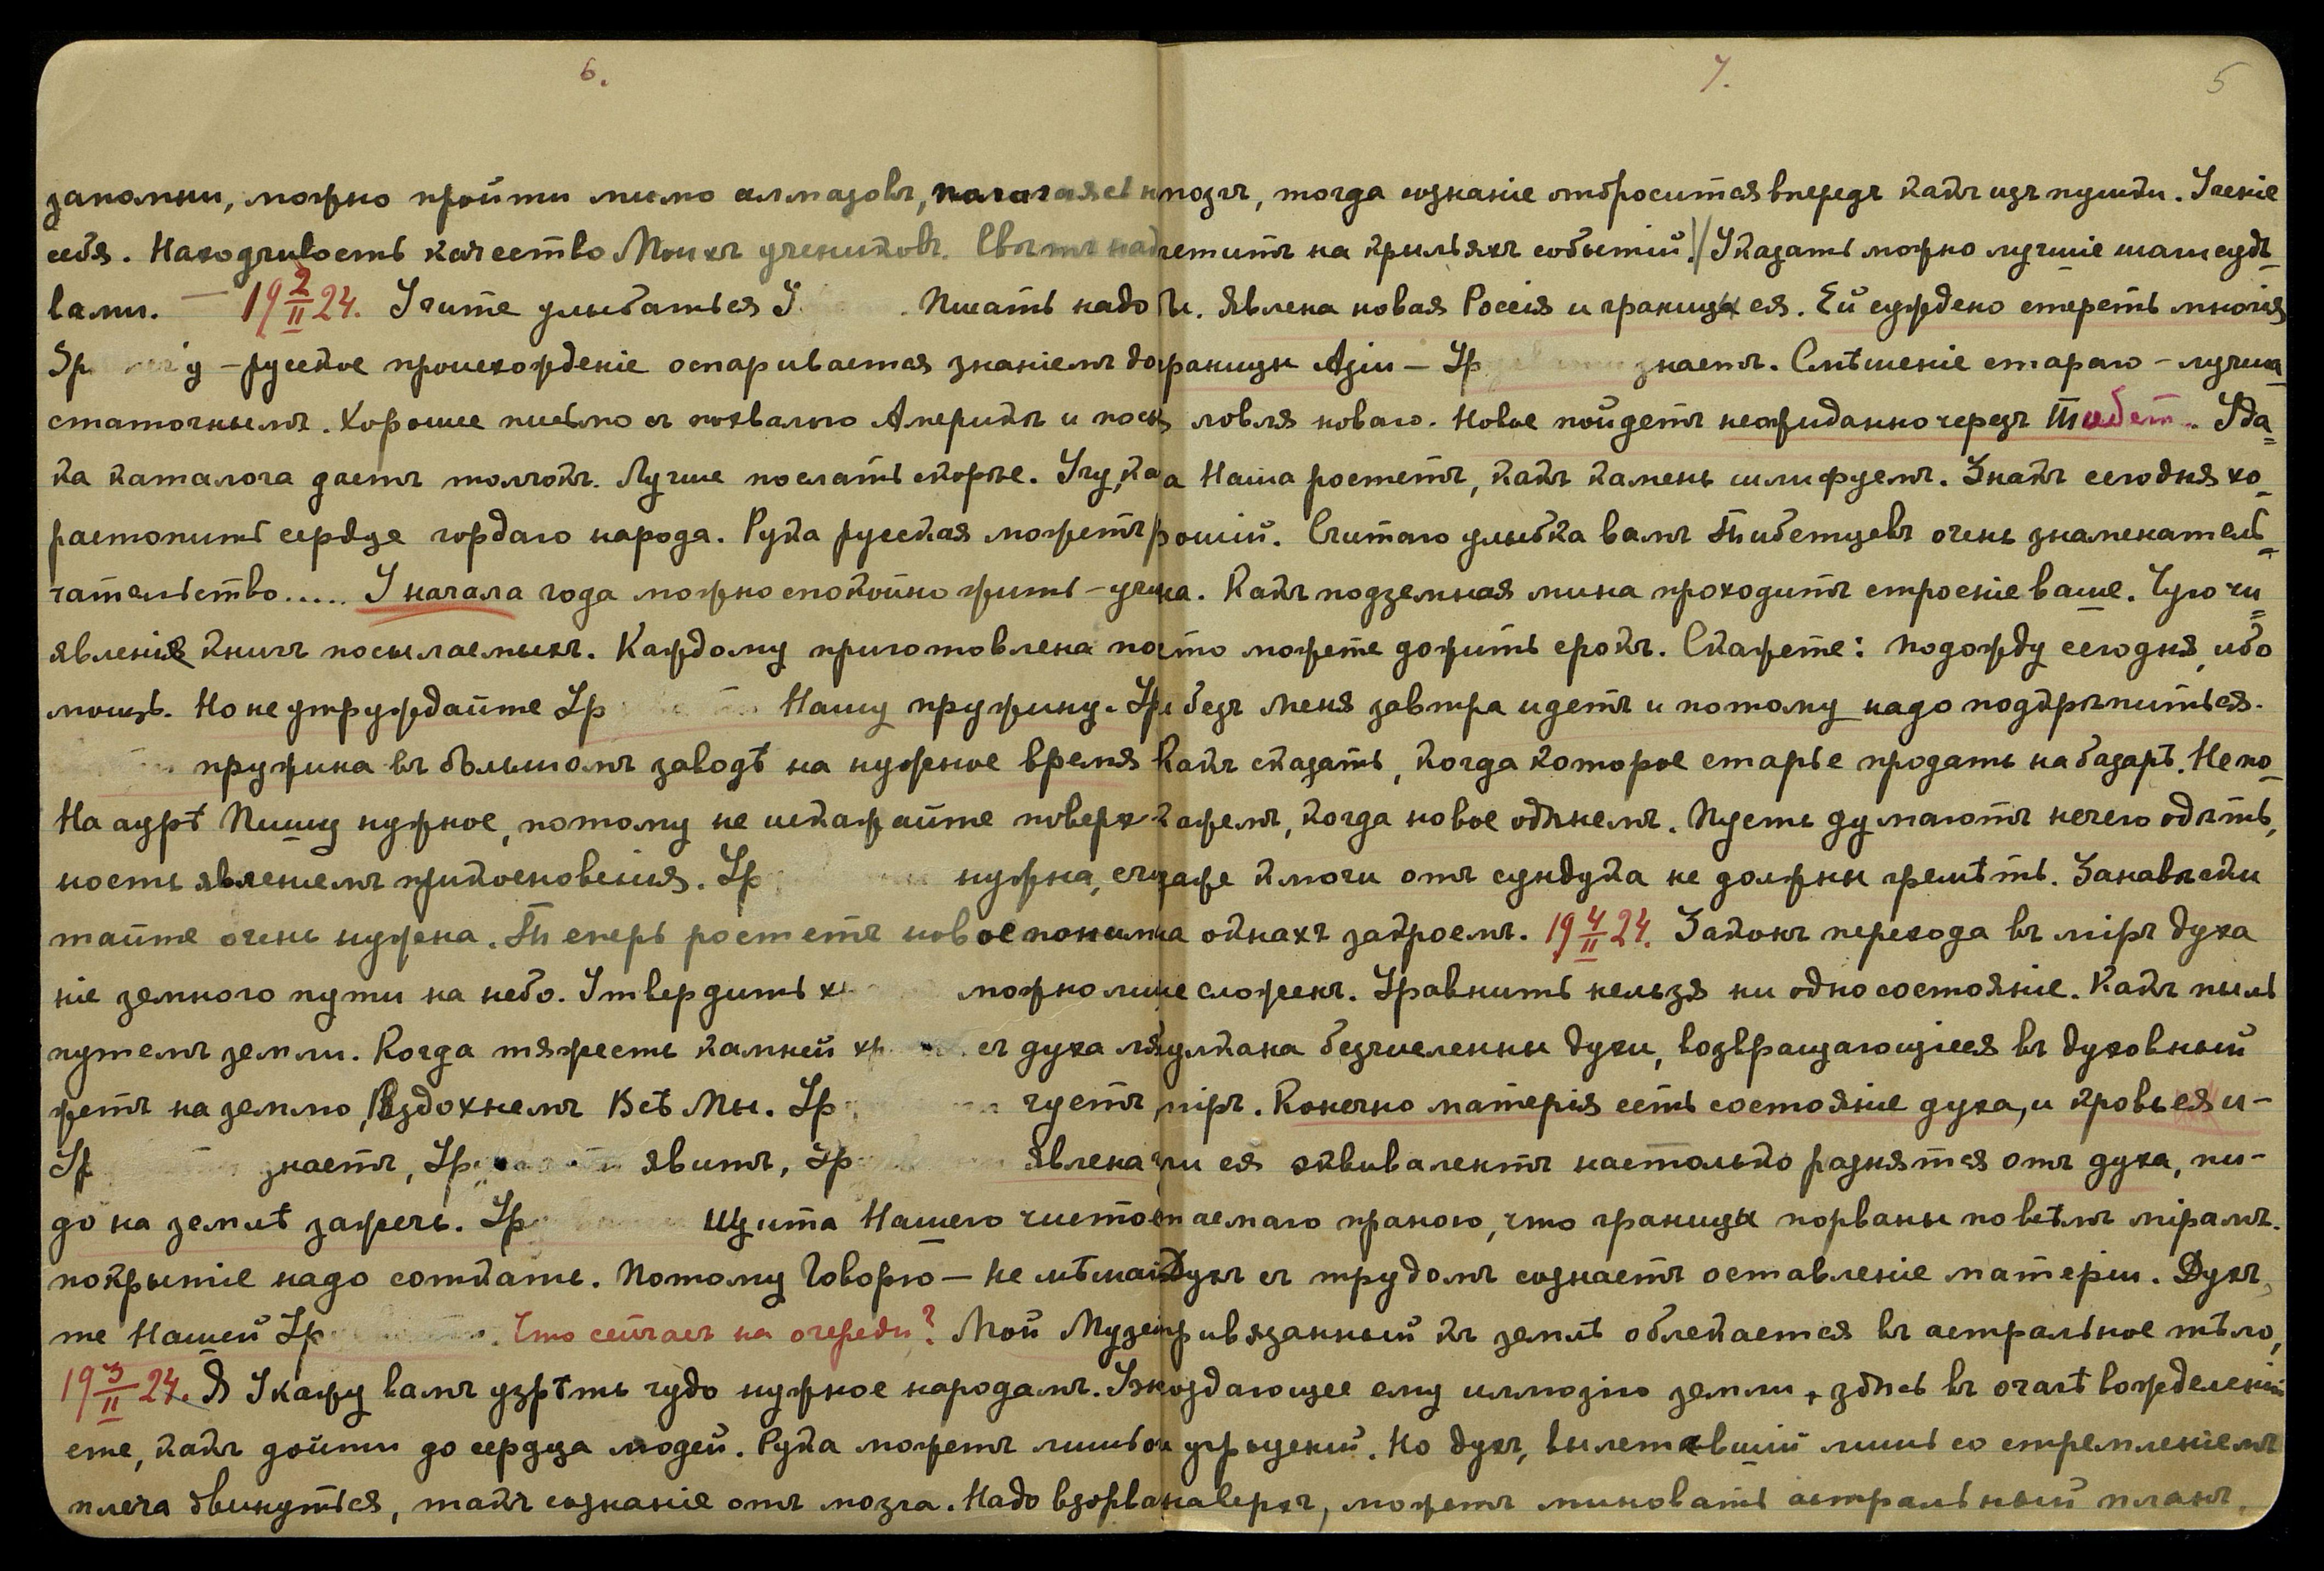 6.
запомни, можно пройти мимо алмазовъ, полагаясь на
себя. Находчивость качество Моихъ учениковъ. Свѣтъ надъ
вами. — 19 2/II 24. Учите улыбаться У . Писать надо
русское происхожденіе оспаривается знаніемъ до
статочнымъ. Хорошее письмо съ похвалою Америкѣ и посыл
ка каталога дастъ толчокъ. Лучше послать скорѣе. Учу, какъ
растопить сердце гордаго народа. Рука русская можетъ
чательство..... У начала года можно спокойно жить – учи
явленія книгъ посылаемыхъ. Каждому приготовлена по
мощь. Но не утруждайте Ур Нашу пружину. Ур
пружина въ большомъ заводѣ на нужное время
На аурѣ Пишу нужное, потому не искажайте поверх
ность явленіемъ прикосновенія. Ур нужна, счи
тайте очень нужна. Теперь ростетъ новое понима
ніе земного пути на небо. Утвердить можно лишь
путемъ земли. Когда тяжесть камней съ духа ля
жетъ на землю, Вздохнемъ Всѣ Мы. Ур чуетъ,
Ур знаетъ, Ур явитъ, Ур явлена чу
до на землѣ зажечь. Ур Щита Нашего чистое
покрытіе надо соткать. Потому Говорю — не мѣшай
те Нашей Ур . Что сейчасъ на очереди? Мой Музей
19 3/II 24. Я Укажу вамъ узрѣть чудо нужное народамъ. Узна
ете, какъ дойти до сердца людей. Рука можетъ лишь отъ
плеча двинуться, такъ сознаніе отъ мозга. Надо взорвать
7.
5
мозгъ, тогда сознаніе отбросится впередъ какъ изъ пушки. Ученіе
летитъ на крыльяхъ событій.// Указать можно лучшіе шаги судь-
бы. Явлена новая Россія и границы ея. Ей суждено стереть многія
границы Азіи — Ур знаетъ. Смѣшеніе стараго – лучша
ловля новаго. Новое пойдетъ неожиданно черезъ Тибет. Уда-
а Наша ростетъ, какъ камень шлифуемъ. Знакъ сегодня хо-
рошій. Считаю улыбка вамъ Тибетцевъ очень знаменатель-
на. Какъ подземная мина проходитъ строеніе ваше. Чую чи-
сто можете дожить срокъ. Скажете: подожду сегодня, ибо
безъ меня завтра идетъ и потому надо подкрѣпиться.
Какъ сказать, когда которое старье продать на базарѣ. Не по-
кажемъ, когда новое одѣнемъ. Пусть думаютъ нечего одѣть,
даже ключи отъ сундука не должны гремѣть. Занавѣски
на окнахъ закроемъ. 19 4/II 24. Законъ перехода въ міръ духа
сложенъ. Уравнить нельзя ни одно состояніе. Какъ пыль
вулкана безчисленны духи, возвращающіеся въ духовный
міръ. Конечно матерія есть состояніе духа, и кровь ея и –
ли ея эквивалентъ настолько разнятся отъ духа, пи-
таемаго праною, что границы порваны по всѣмъ мірамъ.
Духъ съ трудомъ сознаетъ оставленіе матеріи. Духъ,
привязанный къ землѣ облекается въ астральное тѣло,
создающее ему иллюзію земли, здѣсь въ очагѣ вожделеній
и угрызеній. Но духъ, вылетѣвшій лишь со стремленіемъ
наверхъ, можетъ миновать астральный планъ,